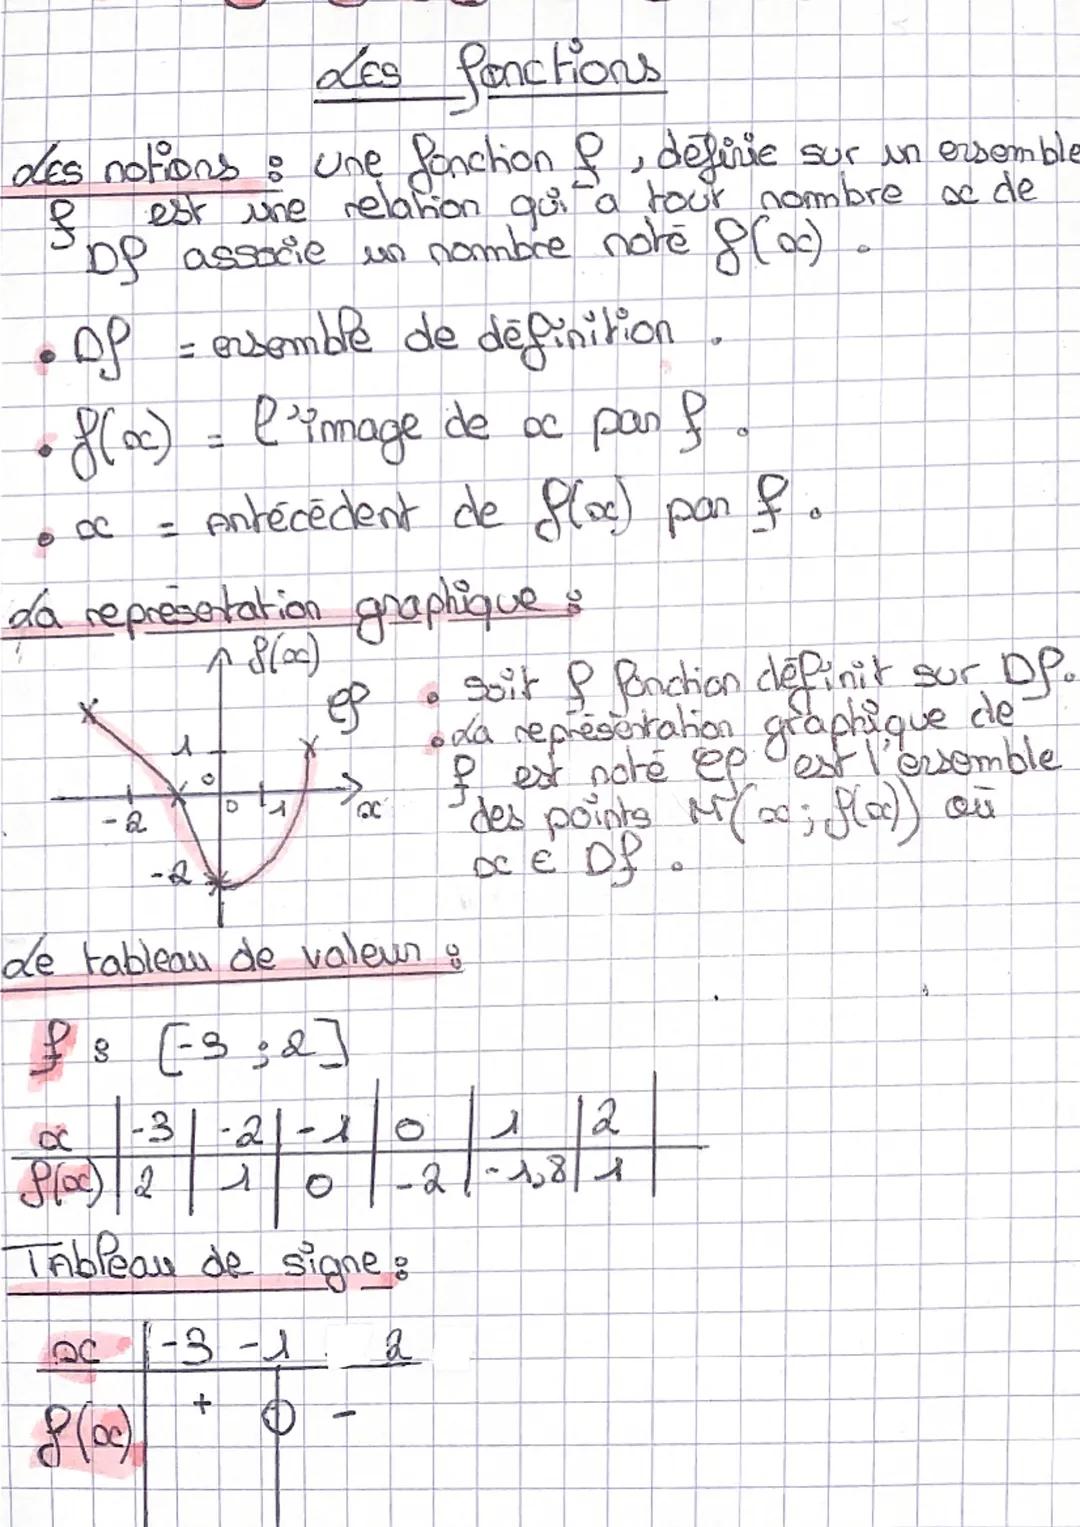 Les fonctions
Les notions : Une fonction f, définie sur un ensemble
f est une relation qui a tout nombre x de
Df associe un nombre noté f(x).
• Df = ensemble de définition.
• f(x) = l'image de x par f.
• x = Antécédent de f(x) par f.
La représentation graphique :
f(x)
Cf
1
0
-2 0 1 x
-2
• Soit f fonction définit sur Df.
• La représentation graphique de
f est noté Cf est l'ensemble
des points M(x; f(x)) où
x ∈ Df.
Le tableau de valeur :
f : [-3 ; 2]
x | -3 | -2 | -1 | 0 | 1 | 2
f(x) | 2 | 1 | 0 | -2 | -1,8 | 1
Tableau de signe :
x | -3 -1 2
f(x) + 0 -